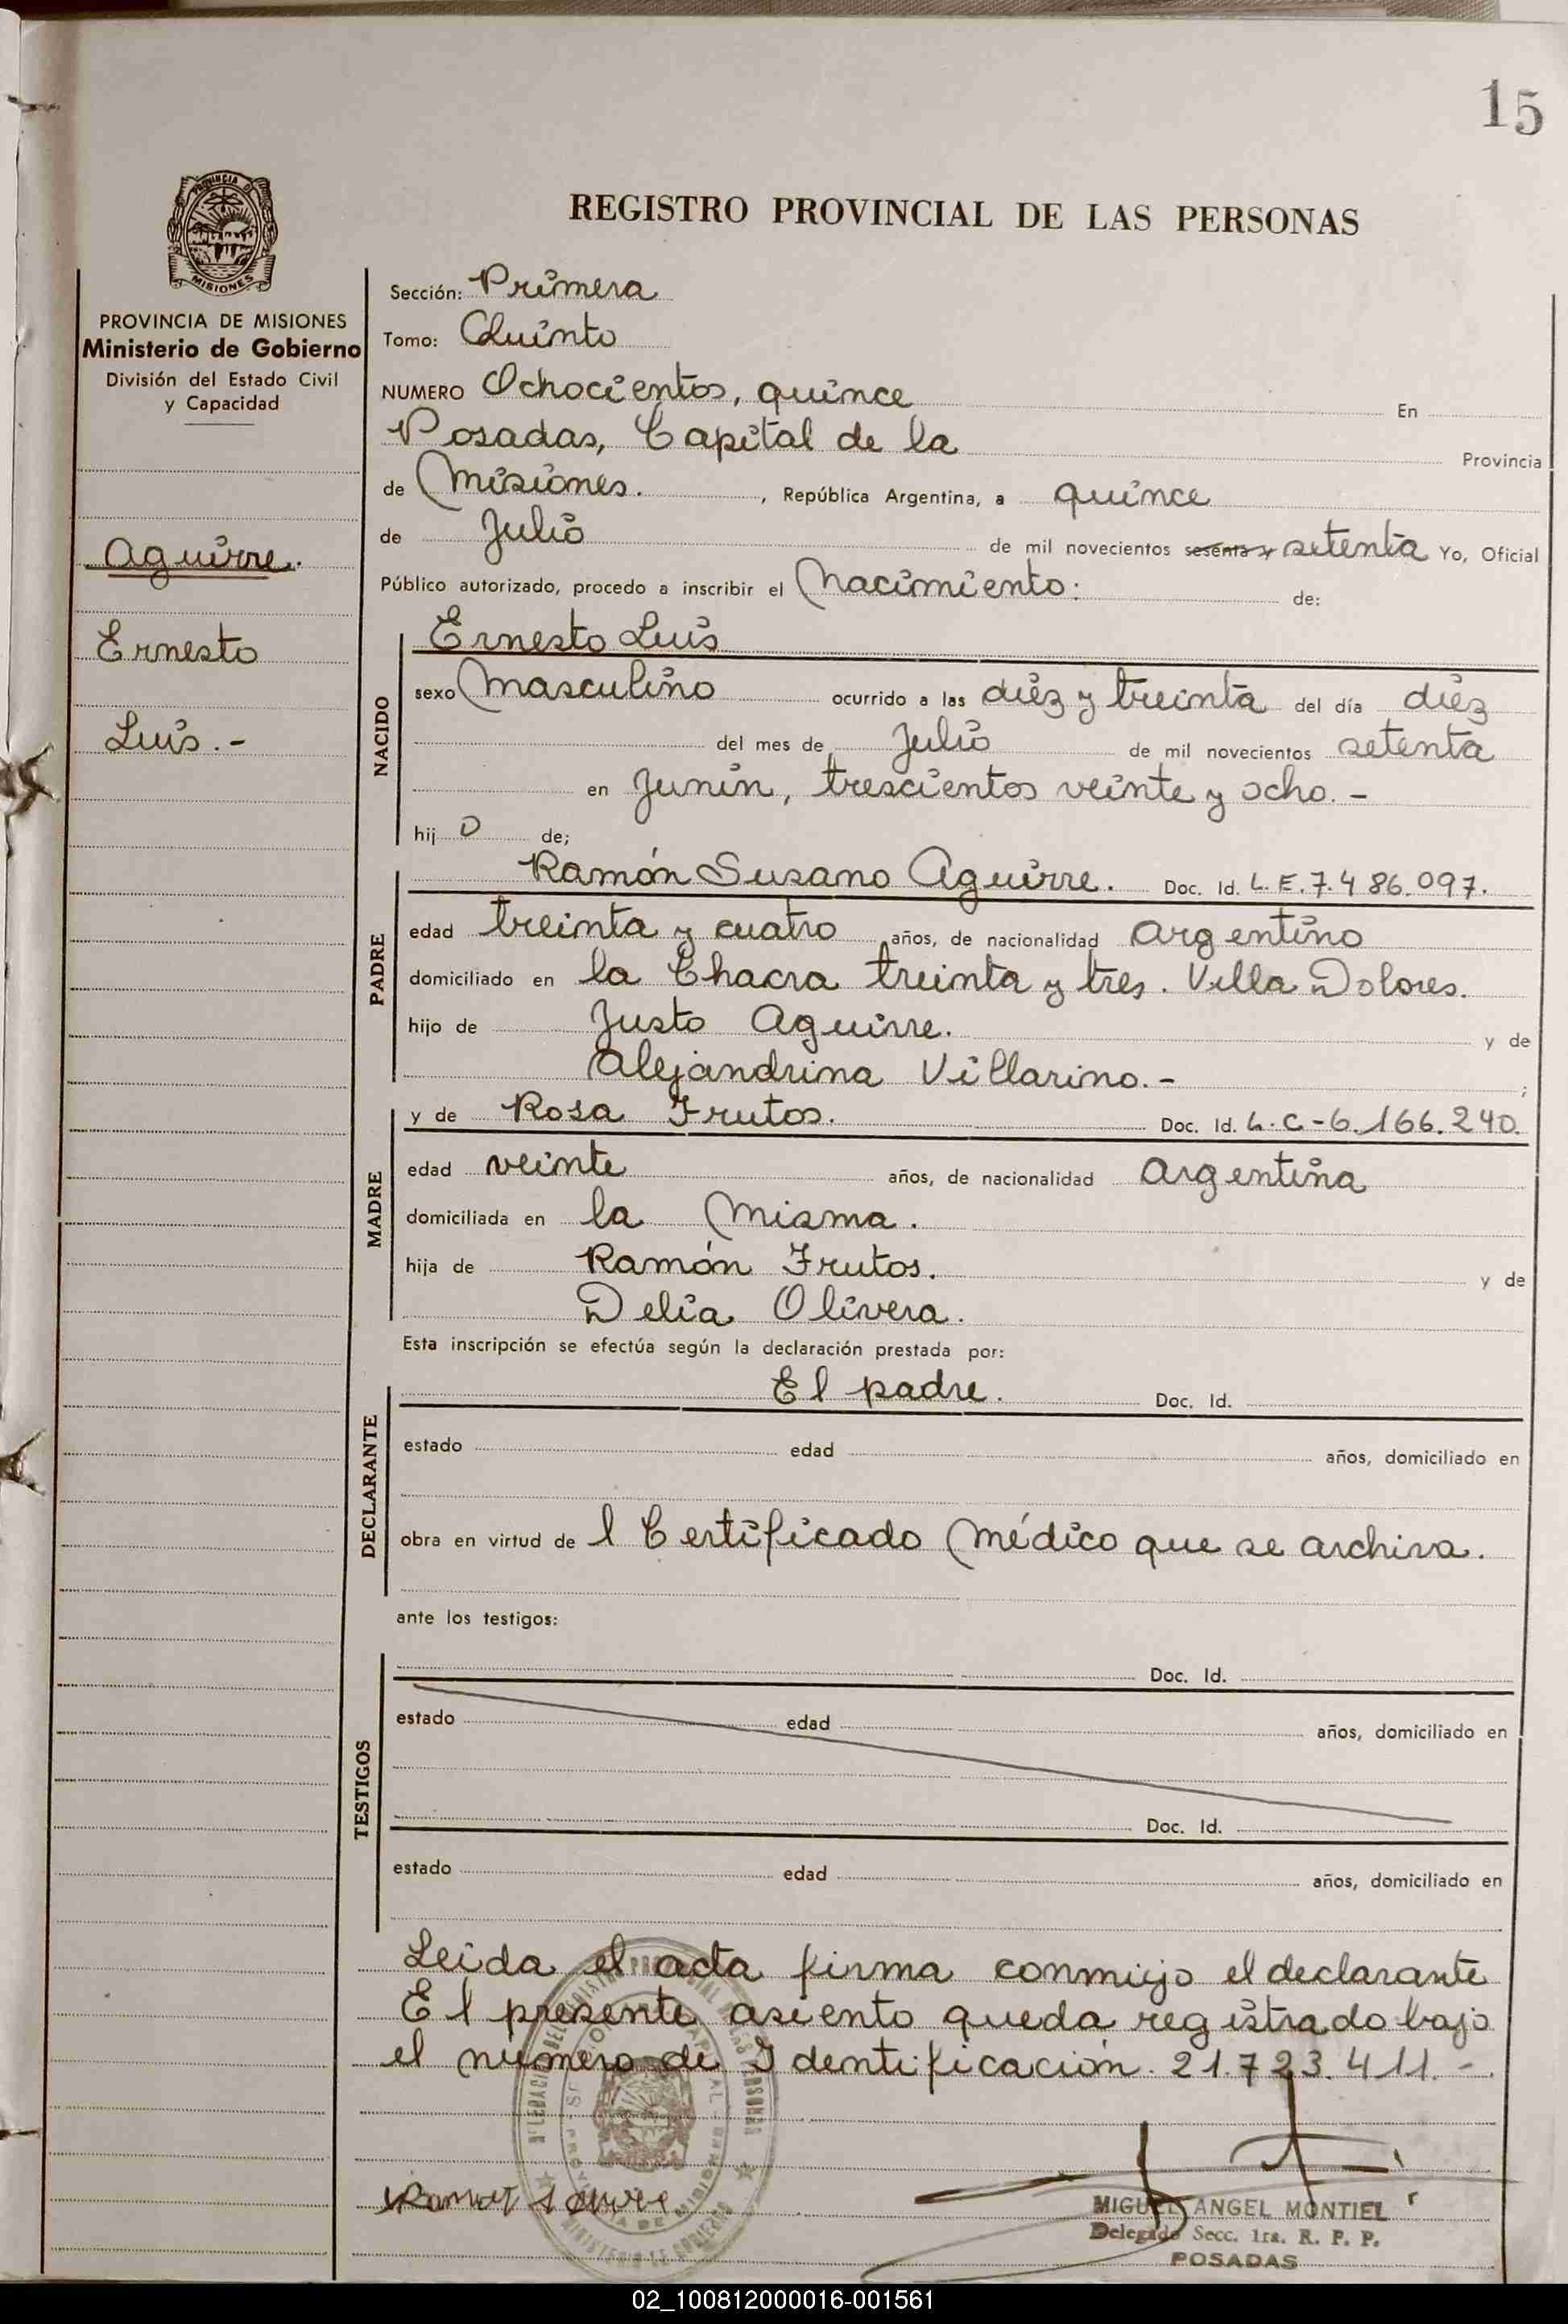 15
PROVINCIA DE
MISIONES
REGISTRO PROVINCIAL DE LAS PERSONAS
PROVINCIA DE MISIONES
Ministerio de Gobierno
División del Estado Civil
y Capacidad
Aguirre.
Ernesto
Luis.-
Sección: Primera
Tomo: Quinto
NUMERO Ochocientos, quince En
Posadas, Capital de la Provincia
de Misiones. , República Argentina, a quince
de Julio de mil novecientos sesenta y setenta Yo, Oficial
Público autorizado, procedo a inscribir el Nacimiento: de:
NACIDO
Ernesto Luis
sexo Masculino ocurrido a las diez y treinta del día diez
del mes de Julio de mil novecientos setenta
en Junin, trescientos veinte y ocho.-
hij o de;
PADRE
Ramón Susano Aguirre. Doc. Id. L.E.7.486.097.
edad treinta y cuatro años, de nacionalidad Argentino
domiciliado en la Chacra treinta y tres. Villa Dolores.
hijo de Justo Aguirre. y de
Alejandrina Villarino.- ;
MADRE
y de Rosa Frutos. Doc. Id. L.C-6.166.240.
edad veinte años, de nacionalidad Argentina
domiciliada en la Misma.
hija de Ramón Frutos. y de
Delia Olivera.
Esta inscripción se efectúa según la declaración prestada por:
DECLARANTE
El padre. Doc. Id.
estado edad años, domiciliado en
obra en virtud de l Certificado Médico que se archiva.
ante los testigos:
TESTIGOS
Doc. Id.
estado edad años, domiciliado en
Doc. Id.
estado edad años, domiciliado en
Leida el acta firma conmigo el declarante
El presente asiento queda registrado bajo
el numero de Identificación 21.723.411.-
MINISTERIO DE GOBIERNO
MIGUEL ANGEL MONTIEL
Delegado Secc. 1ra. R. P. P.
POSADAS
02_100812000016-001561